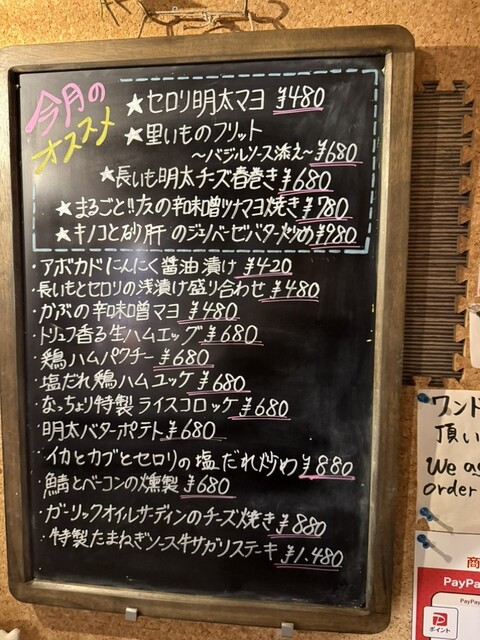 今月の
オススメ
★セロリ明太マヨ ¥480
★里いものフリット
～バジルソース添え～¥680
★長いも明太チーズ春巻き ¥680
★まるごと!!ナスの辛味噌ツナマヨ焼き ¥780
★キノコと砂肝のジェノバーゼバター炒め ¥980
・アボカドにんにく醤油漬け ¥420
・長いもとセロリの浅漬け盛り合わせ ¥480
・かぶの辛味噌マヨ ¥480
・トリュフ香る生ハムエッグ ¥680
・鶏ハムパクチー ¥680
・塩だれ鶏ハムユッケ ¥680
・なっちょり特製ライスコロッケ ¥680
・明太バターポテト ¥680
・イカとカブとセロリの塩だれ炒め ¥880
・鯖とベーコンの燻製 ¥680
・ガーリックオイルサーディンのチーズ焼き ¥880
・特製たまねぎソース牛サガリステーキ ¥1.480
ワンド
頂い
We as
order
商
PayPa
PayPa
ポイント